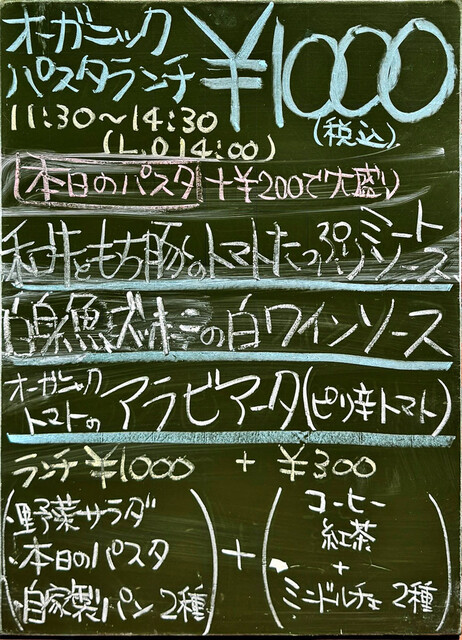 オーガニック
パスタランチ ¥1000
11:30〜14:30 (税込)
(L.O 14:00)
本日のパスタ +¥200で大盛り
和牛ともち豚のトマトたっぷりミートソース
白身魚ズッキーニの白ワインソース
オーガニック
トマトの アラビアータ(ピリ辛トマト)
ランチ ¥1000 + ¥300
・野菜サラダ
・本日のパスタ
・自家製パン 2種
+
コーヒー
紅茶
+
ミニドルチェ 2種